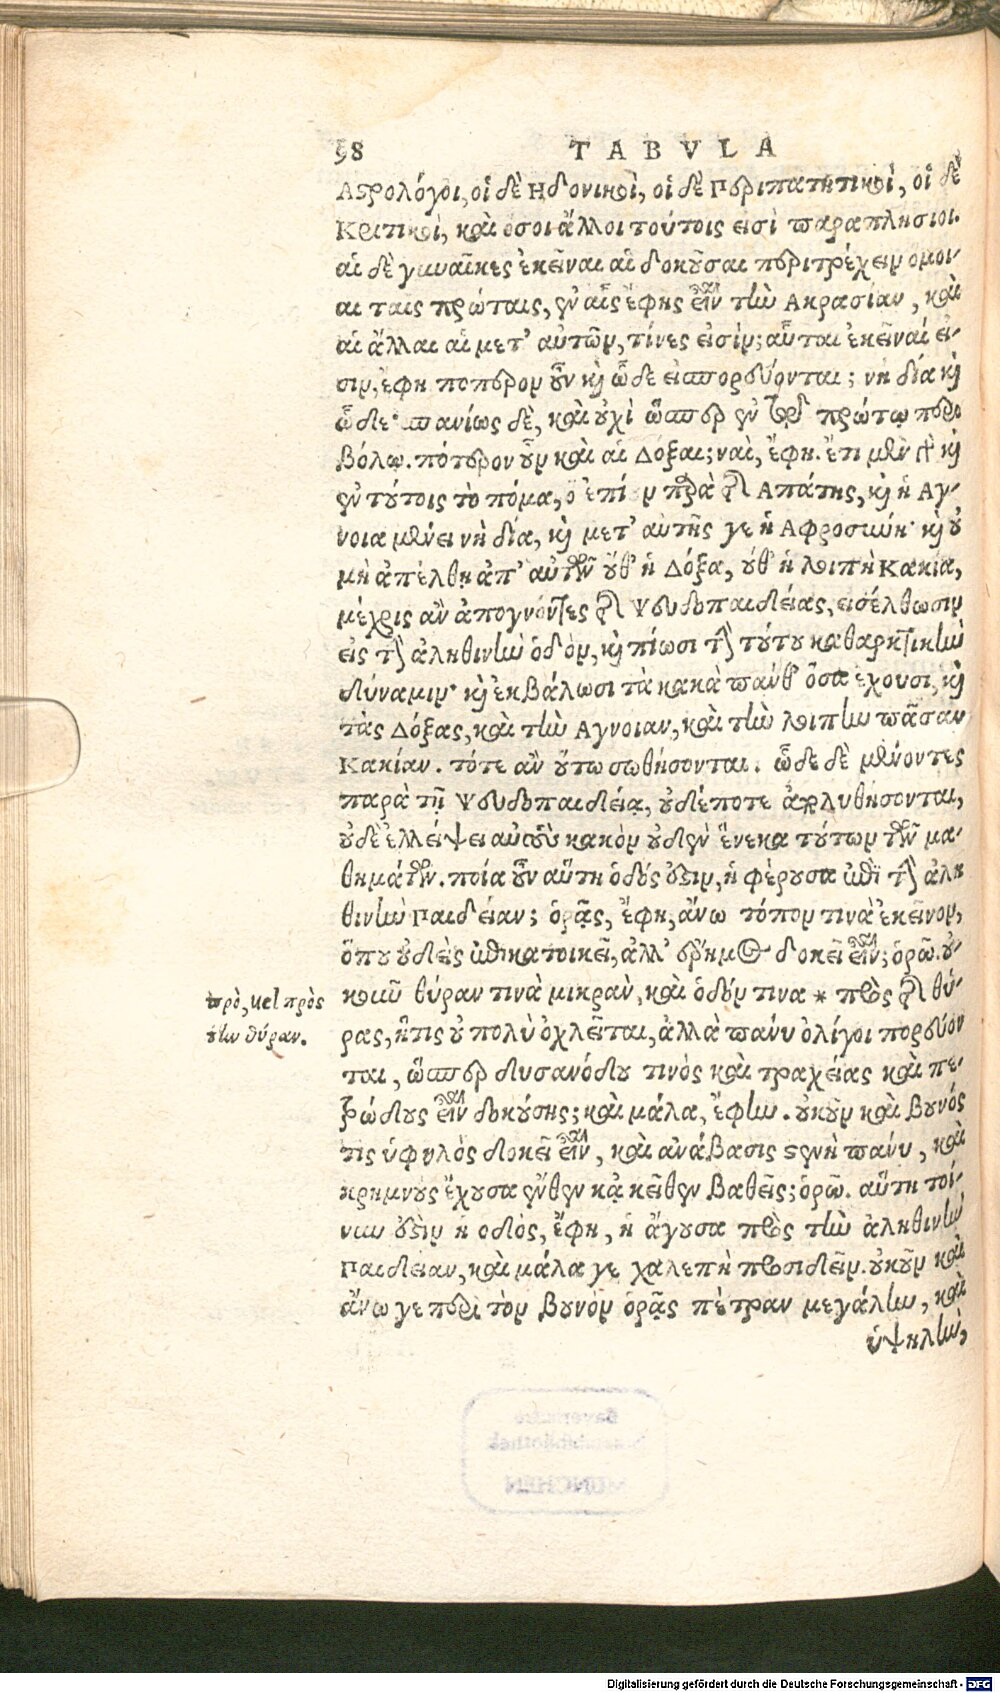 98 TABVLA
Αστρολόγοι, οἱ δὲ Ηδονικοὶ, οἱ δὲ Περιπατητικοὶ, οἱ δὲ
Κριτικοὶ, καὶ ὅσοι ἄλλοι τούτοις εἰσὶ παραπλήσιοι.
αἱ δὲ γυναῖκες ἐκεῖναι αἱ δοκοῦσαι περιτρέχειν ὅμοι-
αι ταις πρώταις, ἐν αἷς ἔφης εἶναι τὴν Ακρασίαν, καὶ
αἱ ἄλλαι αἱ μετ' αὐτῶν, τίνες εἰσίν; αὗται ἐκεῖναί εἰ-
σιν, ἔφη. πότερον οὖν καὶ ὧδε εἰσπορεύονται; νὴ δία καὶ
ὧδε· σπανίως δὲ, καὶ οὐχὶ ὥσπερ ἐν τῷ πρώτῳ περι
βόλῳ. πότερον οὖν καὶ αἱ Δόξαι; ναὶ, ἔφη. ἔτι μὲν γὰρ καὶ
ἐν τούτοις τὸ πόμα, ὃ ἐπίον παρὰ τῆς Απάτης, καὶ ἡ Αγ-
νοια μένει νὴ δία, καὶ μετ' αὐτῆς γε ἡ Αφροσύνη· καὶ οὐ
μὴ ἀπέλθῃ ἀπ' αὐτῶν οὔθ' ἡ Δόξα, οὔθ' ἡ λοιπὴ Κακία,
μέχρις ἂν ἀπογνόντες τῆς Ψευδοπαιδείας, εἰσέλθωσιν
εἰς τὴν ἀληθινὴν ὁδὸν, καὶ πίωσι τὴν τούτου καθαρτικὴν
δύναμιν· καὶ ἐκβάλωσι τὰ κακὰ πάνθ' ὅσα ἔχουσι, καὶ
τὰς Δόξας, καὶ τὴν Αγνοιαν, καὶ τὴν λοιπὴν πᾶσαν
Κακίαν. τότε ἂν οὕτω σωθήσονται. ὧδε δὲ μένοντες
παρὰ τῇ Ψευδοπαιδείᾳ, οὐδέποτε ἀπολυθήσονται,
οὐδὲ ἐλλείψει αὐτοὺς κακὸν οὐδὲν ἕνεκα τούτων τῶν μα-
θημάτων. ποία οὖν αὕτη ὁδός ἐστιν, ἡ φέρουσα ἐπὶ τὴν ἀλη
θινὴν Παιδείαν; ὁρᾷς, ἔφη, ἄνω τόπον τινὰ ἐκεῖνον,
ὅπου οὐδεὶς ἐπικατοικεῖ, ἀλλ' ἔρημος δοκεῖ εἶναι; ὁρῶ. οὐ-
κοῦν θύραν τινὰ μικρὰν, καὶ ὁδόν τινα * πρὸς τῆς θύ-
ρας, ἥτις οὐ πολὺ ὀχλεῖται, ἀλλὰ πάνυ ὀλίγοι πορεύον
ται, ὥσπερ δυσανόδου τινὸς καὶ τραχείας καὶ πε-
τρώδους εἶναι δοκούσης; καὶ μάλα, ἔφην. οὐκοῦν καὶ βουνός
τις ὑψηλὸς δοκεῖ εἶναι, καὶ ἀνάβασις στενὴ πάνυ, καὶ
κρημνοὺς ἔχουσα ἔνθεν κᾀκεῖθεν βαθεῖς; ὁρῶ. αὕτη τοί-
νυν ἐστὶν ἡ ὁδὸς, ἔφη, ἡ ἄγουσα πρὸς τὴν ἀληθινὴν
Παιδείαν, καὶ μάλα γε χαλεπὴ προσιδεῖν. οὐκοῦν καὶ
ἄνω γε περὶ τὸν βουνὸν ὁρᾷς πέτραν μεγάλην, καὶ
ὑψηλὴν,
πρὸ, uel πρὸς
τὴν θύραν.
Digitalisierung gefördert durch die Deutsche Forschungsgemeinschaft - DFG